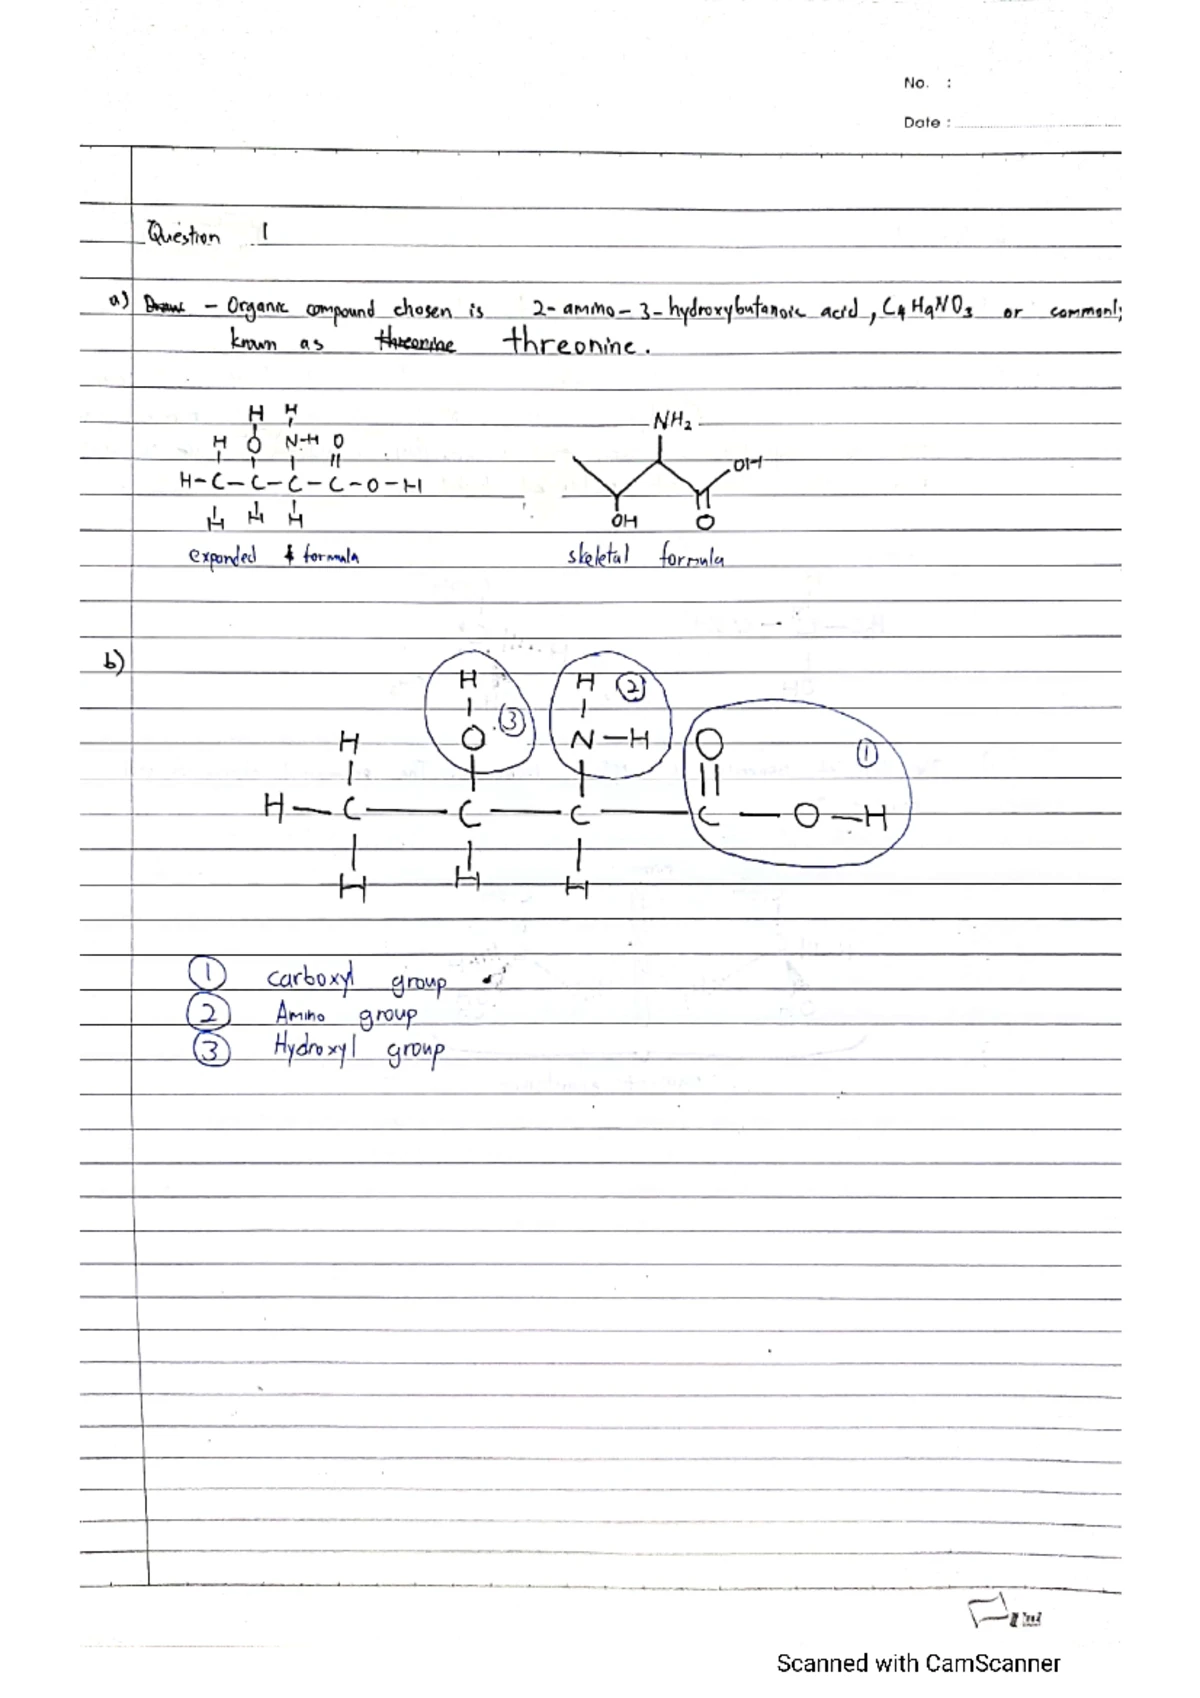 No. :
Date :
Question 1
a) Draw - Organic compound chosen is 2-amino-3-hydroxybutanoic acid, C4H9NO3 or commonly
known as threonine threonine.
H H
H O N-H O
H-C-C-C-C-O-H
H H H
NH2
OH
OH O
expanded formula
skeletal formula
b)
H H 2
3
H O N-H O 1
H-C-C-C-C-O-H
H H H
1 carboxyl group
2 Amino group
3 Hydroxyl group
Scanned with CamScanner